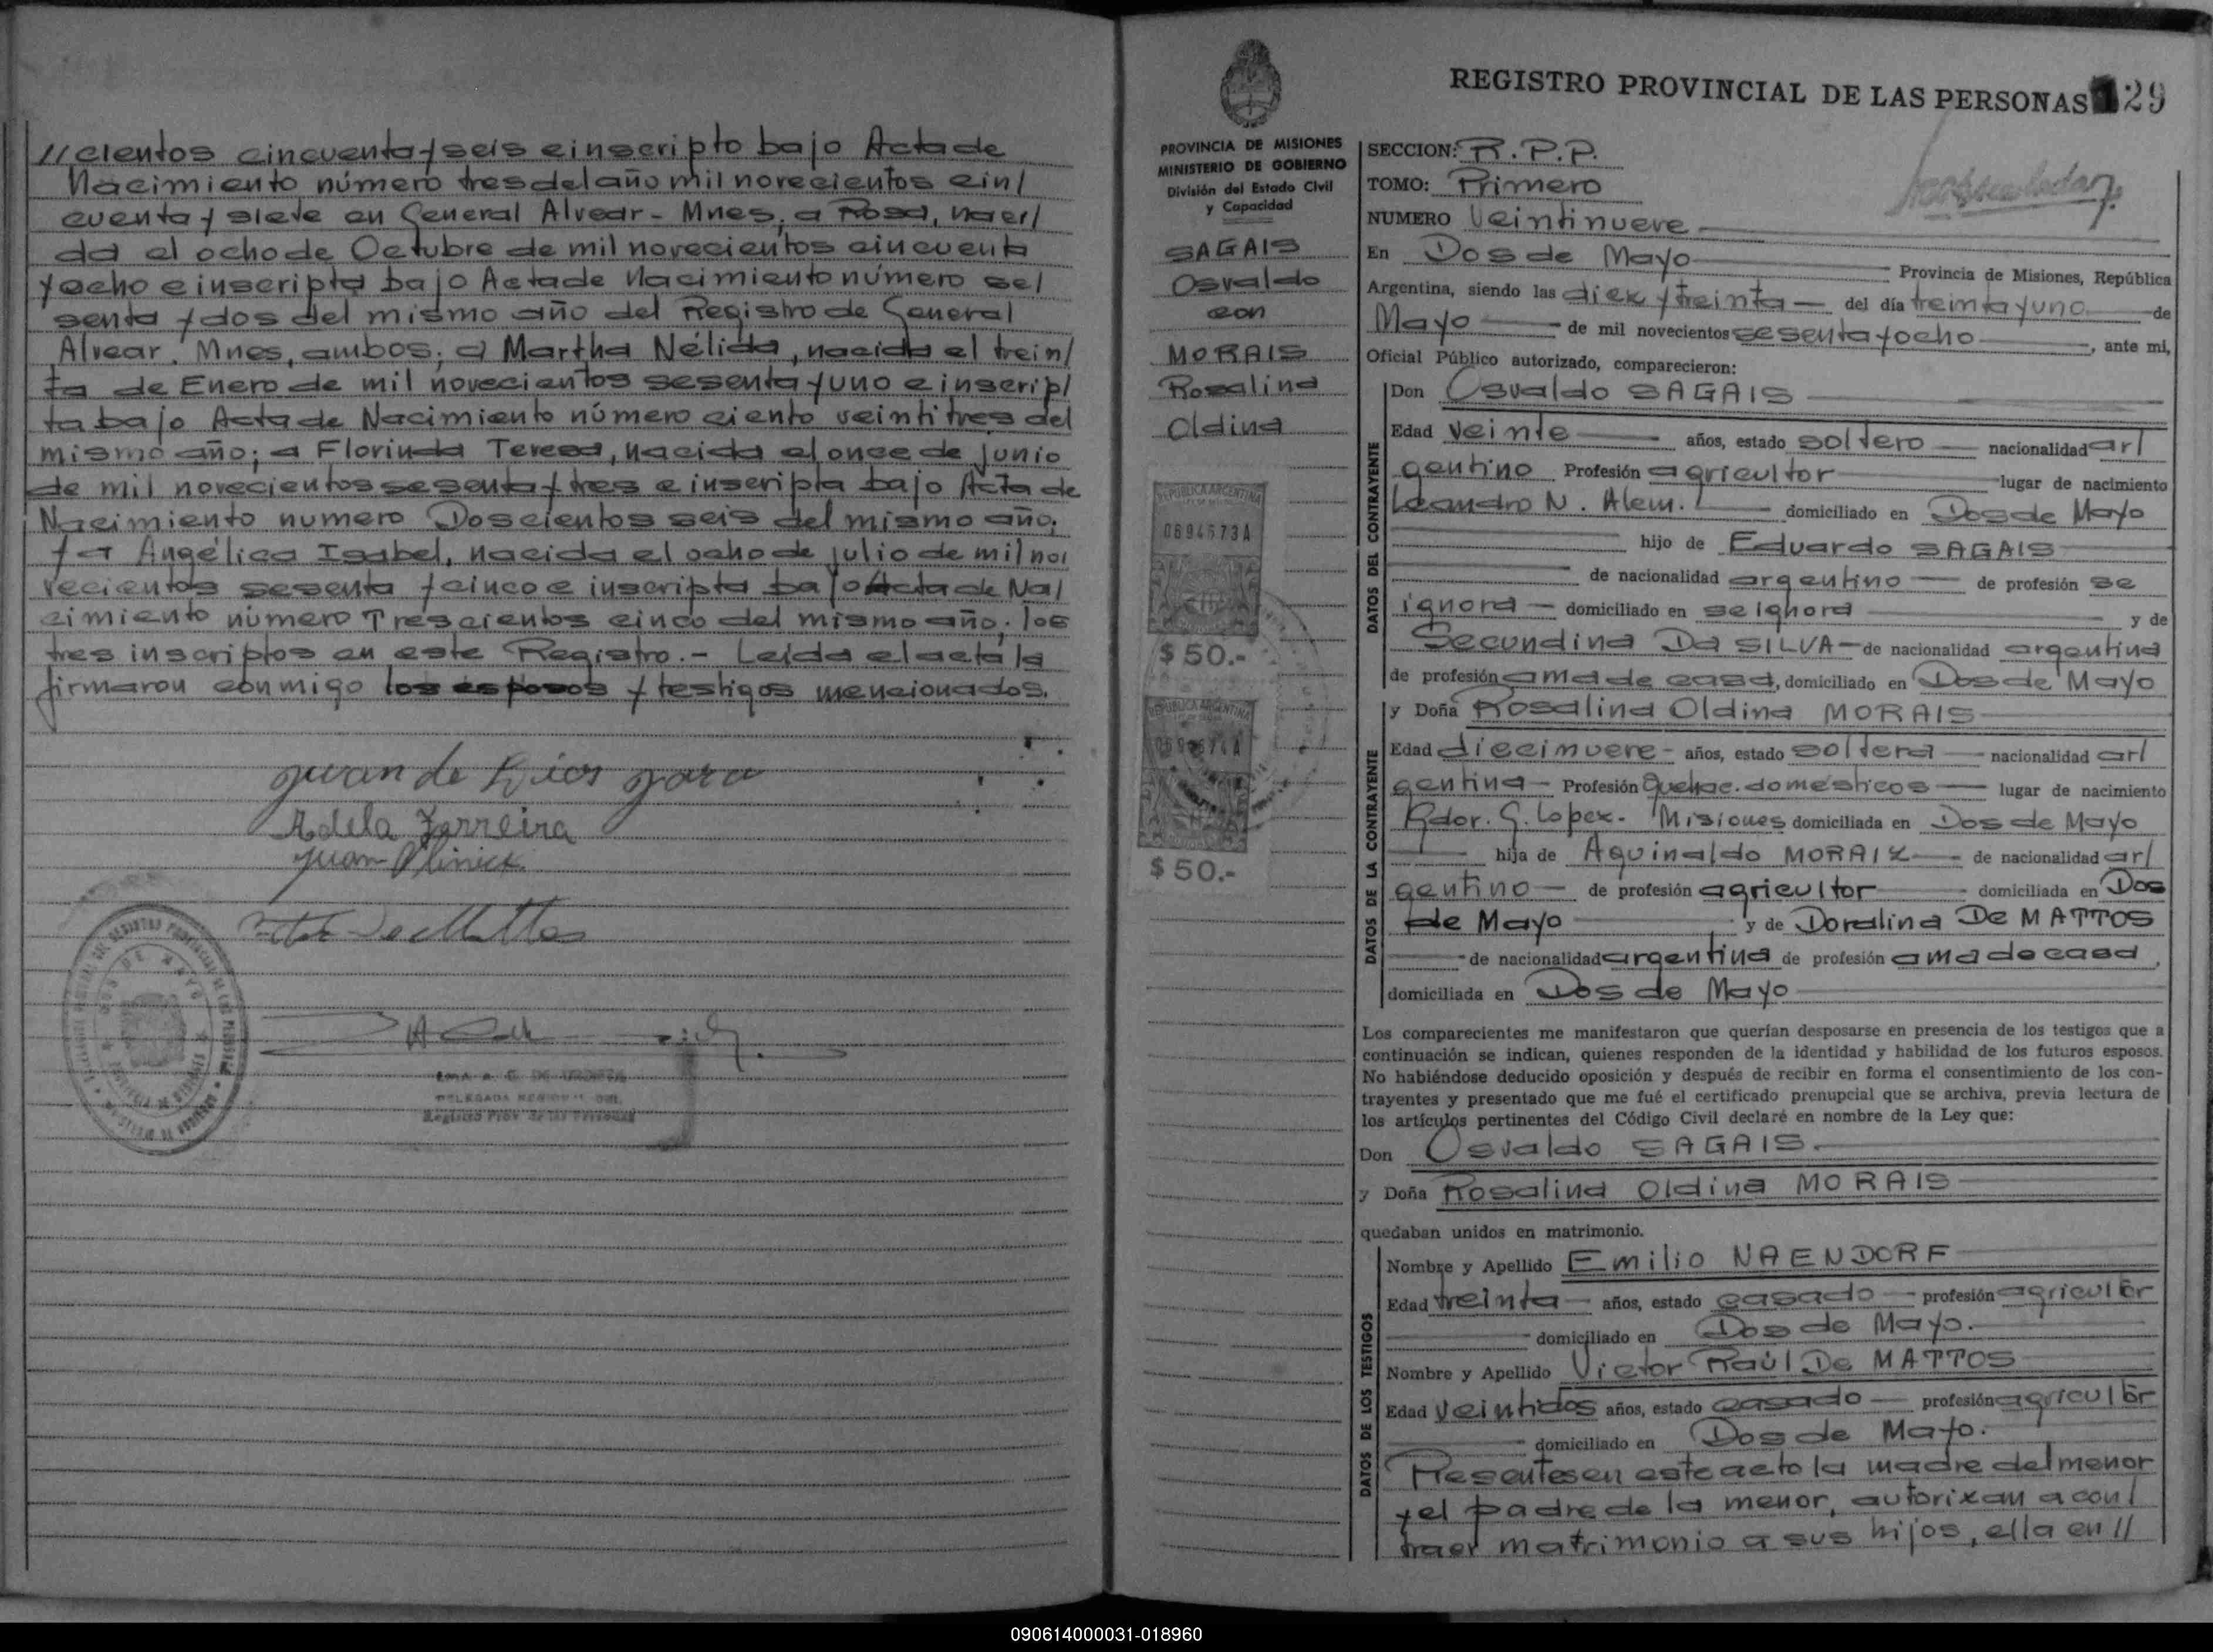 //cientos cincuenta y seis e inscripto bajo Acta de
Nacimiento número tres del año mil novecientos cin/
cuenta y siete en General Alvear - Mnes; a Rosa, naci/
da el ocho de Octubre de mil novecientos cincuenta
y ocho e inscripta bajo Acta de Nacimiento número se/
senta y dos del mismo año del Registro de General
Alvear. Mnes, ambos; a Martha Nélida, nacida el trein/
ta de Enero de mil novecientos sesenta y uno e inscrip/
ta bajo Acta de Nacimiento número ciento veintitres del
mismo año; a Florinda Teresa, nacida el once de junio
de mil novecientos sesenta y tres e inscripta bajo Acta de
Nacimiento numero Doscientos seis del mismo año;
y a Angélica Isabel, nacida el ocho de julio de mil no/
vecientos sesenta y cinco e inscripta bajo Acta de Na/
cimiento número Trescientos cinco del mismo año; los
tres inscriptos en este Registro.- Leida el acta la
firmaron conmigo los esposos y testigos mencionados.
Juan de Dios
Adela Ferreira
Juan
DELEGADA
Registro Prov. de las Personas
REGISTRO PROVINCIAL DE LAS PERSONAS 129
PROVINCIA DE MISIONES
MINISTERIO DE GOBIERNO
División del Estado Civil
y Capacidad
SAGAIS
Osvaldo
con
MORAIS
Rosalina
Oldina
REPUBLICA ARGENTINA
0694673A
$ 50.-
REPUBLICA ARGENTINA
$ 50.-
SECCION: R.P.P.
TOMO: Primero
NUMERO Veintinueve
En Dos de Mayo Provincia de Misiones, República
Argentina, siendo las diez y treinta del día treinta y uno de
Mayo de mil novecientos sesenta y ocho, ante mi,
Oficial Público autorizado, comparecieron:
DATOS DEL CONTRAYENTE
Don Osvaldo SAGAIS
Edad veinte años, estado soltero nacionalidad ar/
gentino Profesión agricultor lugar de nacimiento
Leandro N. Alem. domiciliado en Dos de Mayo
hijo de Eduardo SAGAIS
de nacionalidad argentino de profesión se
ignora domiciliado en se ignora y de
Secundina Da SILVA de nacionalidad argentina
de profesión ama de casa, domiciliado en Dos de Mayo
DATOS DE LA CONTRAYENTE
y Doña Rosalina Oldina MORAIS
Edad diecinueve años, estado soltera nacionalidad ar/
gentina Profesión Quehac. domésticos lugar de nacimiento
Gdor. G. Lopez. Misiones domiciliada en Dos de Mayo
hija de Aguinaldo MORAIZ de nacionalidad ar/
gentino de profesión agricultor domiciliada en Dos
de Mayo y de Doralina De MATTOS
de nacionalidad argentina de profesión ama de casa,
domiciliada en Dos de Mayo
Los comparecientes me manifestaron que querían desposarse en presencia de los testigos que a
continuación se indican, quienes responden de la identidad y habilidad de los futuros esposos.
No habiéndose deducido oposición y después de recibir en forma el consentimiento de los con-
trayentes y presentado que me fué el certificado prenupcial que se archiva, previa lectura de
los artículos pertinentes del Código Civil declaré en nombre de la Ley que:
Don Osvaldo SAGAIS.
y Doña Rosalina Oldina MORAIS
quedaban unidos en matrimonio.
DATOS DE LOS TESTIGOS
Nombre y Apellido Emilio NAENDORF
Edad treinta años, estado casado profesión agricultor
domiciliado en Dos de Mayo.
Nombre y Apellido Victor Raúl De MATTOS
Edad Veintidos años, estado casado profesión agricultor
domiciliado en Dos de Mayo.
Presentes en este acto la madre del menor
y el padre de la menor, autorizan a con/
traer matrimonio a sus hijos, ella en //
090614000031-018960